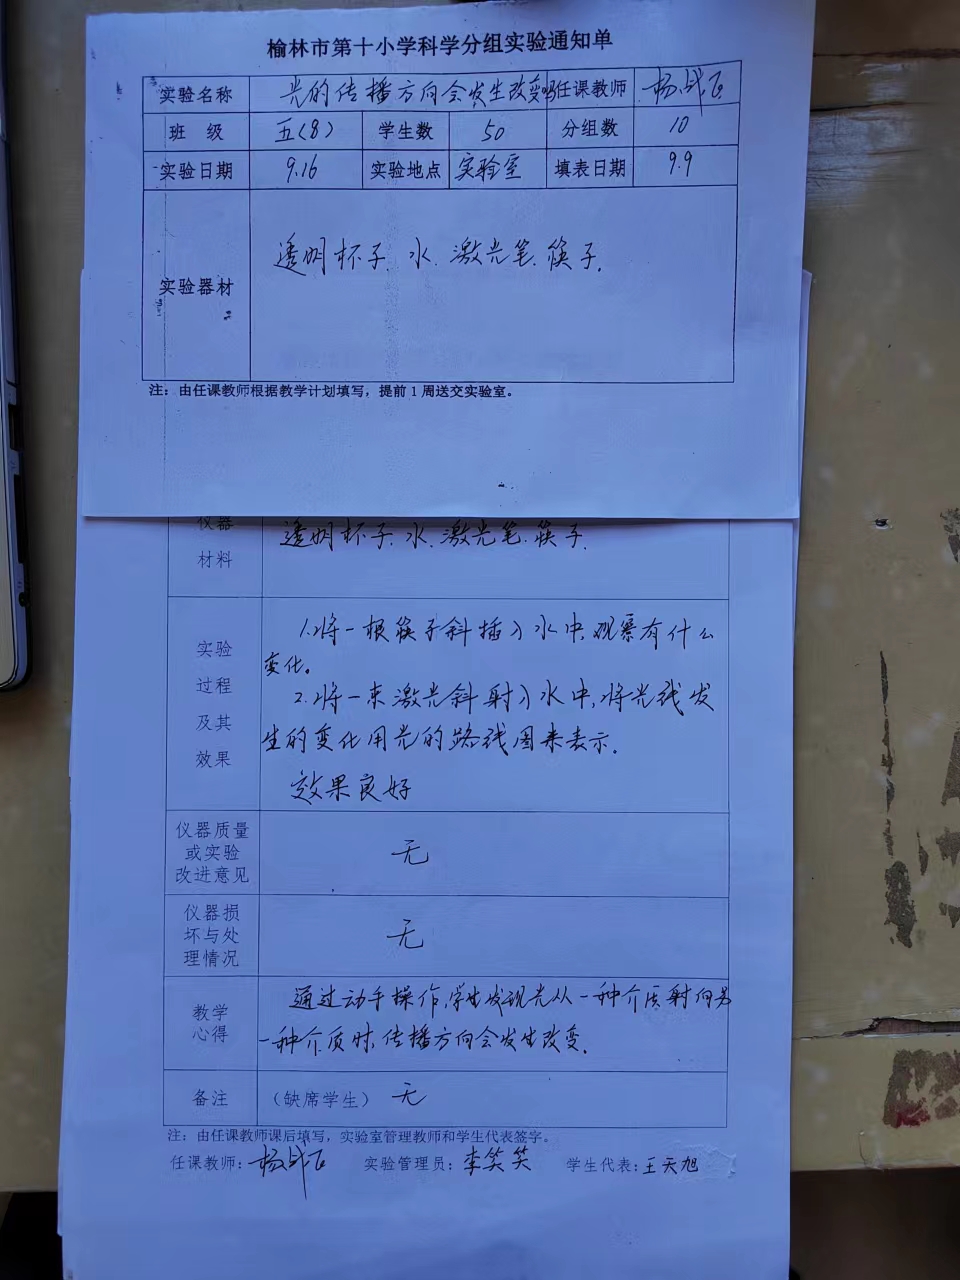 榆林市第十小学科学分组实验通知单
实验名称 光的传播方向会发生改变吗 任课教师 杨
班 级 五(8) 学生数 50 分组数 10
实验日期 9.16 实验地点 实验室 填表日期 9.9
实验器材 透明杯子、水、激光笔、筷子.
注：由任课教师根据教学计划填写，提前 1 周送交实验室。
仪器
材料
透明杯子、水、激光笔、筷子.
实验
过程
及其
效果
1.将一根筷子斜插入水中,观察有什么
变化。
2.将一束激光斜射入水中,将光线发
生的变化用光的路线图来表示.
效果良好
仪器质量
或实验
改进意见
无
仪器损
坏与处
理情况
无
教学
心得
通过动手操作,学生发现光从一种介质射向另
一种介质时,传播方向会发生改变.
备注 (缺席学生) 无
注：由任课教师课后填写，实验室管理教师和学生代表签字。
任课教师: 杨 实验管理员: 李笑笑 学生代表: 王天旭